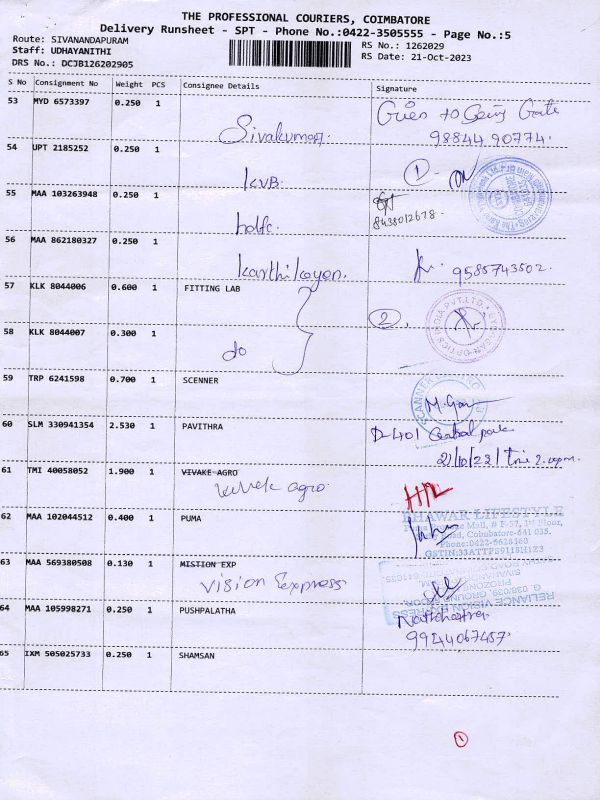 THE PROFESSIONAL COURIERS, COIMBATORE
Delivery Runsheet - SPT - Phone No.:0422-3505555 - Page No.:5
Route: SIVANANDAPURAM
Staff: UDHAYANITHI
DRS No.: DCJB126202905
RS No.: 1262029
RS Date: 21-Oct-2023
S No Consignment No Weight PCS Consignee Details Signature
53 MYD 6573397 0.250 1 Sivakumar 98844 90774
54 UPT 2185252 0.250 1 KVB 1
55 MAA 103263948 0.250 1 hdfc 8438012678
56 MAA 862180327 0.250 1 Karthikeyan 9585743502
57 KLK 8044006 0.600 1 FITTING LAB 2
58 KLK 8044007 0.300 1 do
59 TRP 6241598 0.700 1 SCENNER
60 SLM 330941354 2.530 1 PAVITHRA D-401 Central park
61 TMI 40058052 1.900 1 VIVAKE AGRO
Vivek agro
62 MAA 102044512 0.400 1 PUMA
BHAWAR LIFESTYLE
Mall, # F-57, 1st Floor,
Road, Coimbatore-641 035.
Phone:0422-6628360
63 MAA 569380508 0.130 1 MISTION EXP
Vision Express
RELIANCE VISION EXPRESS
64 MAA 105998271 0.250 1 PUSHPALATHA 9944067457
65 IXM 505025733 0.250 1 SHAMSAN
1